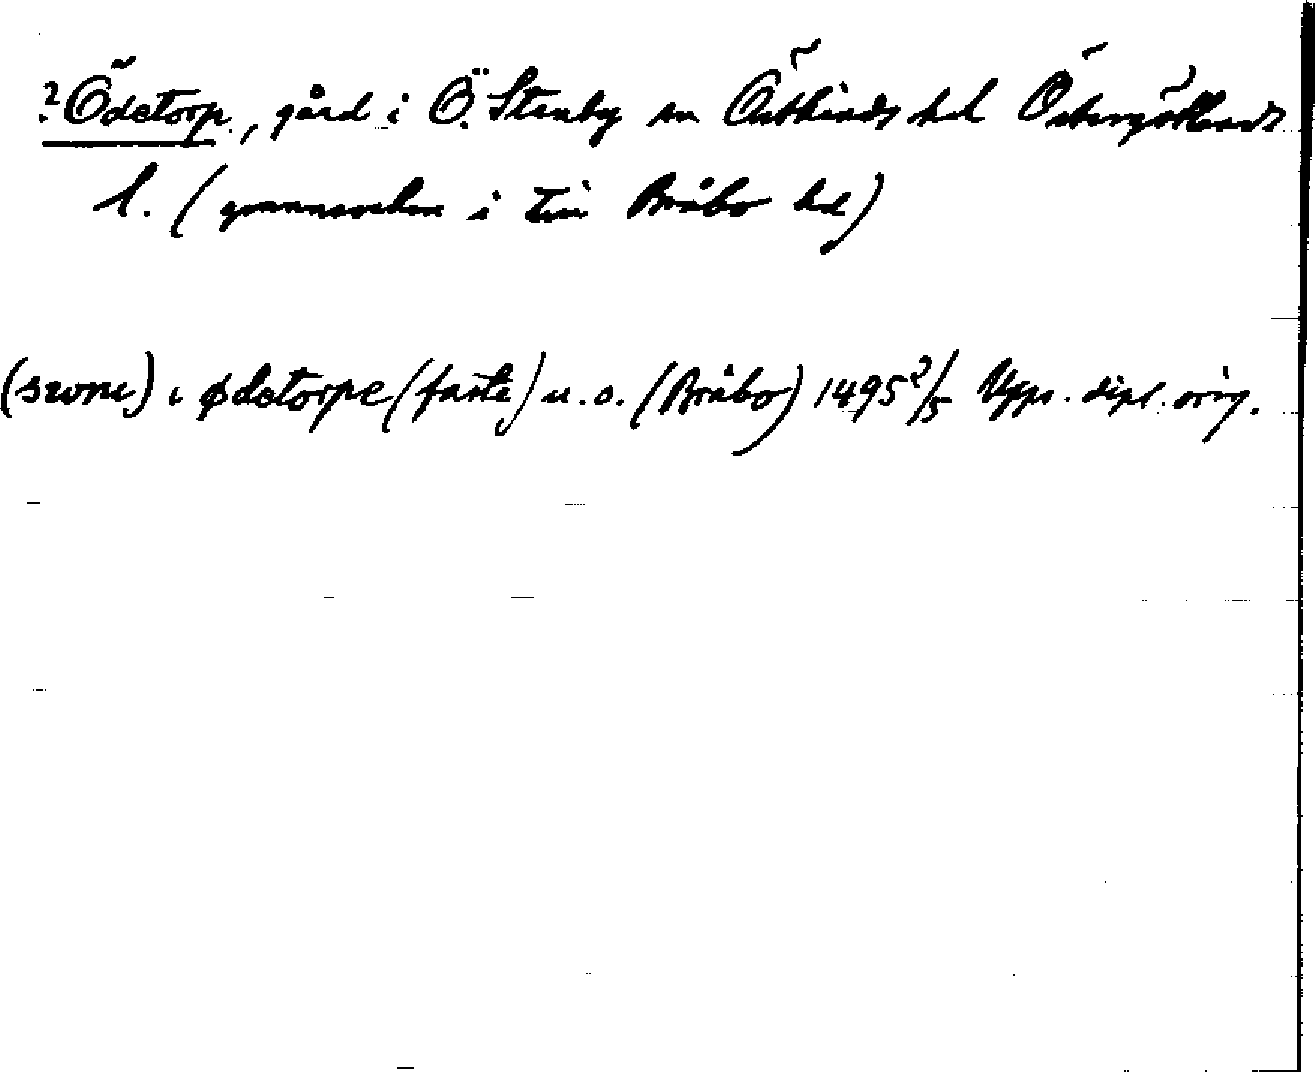 ?Ödetorp, gård i Ö. Stenby sn Östkinds hd Östergötlands
l. (grannsocken i till Bråbo hd)
(swone) i ødetorpe (faste) u. o. (Bråbo) 1495 2/5 Upps. dipl. orig.